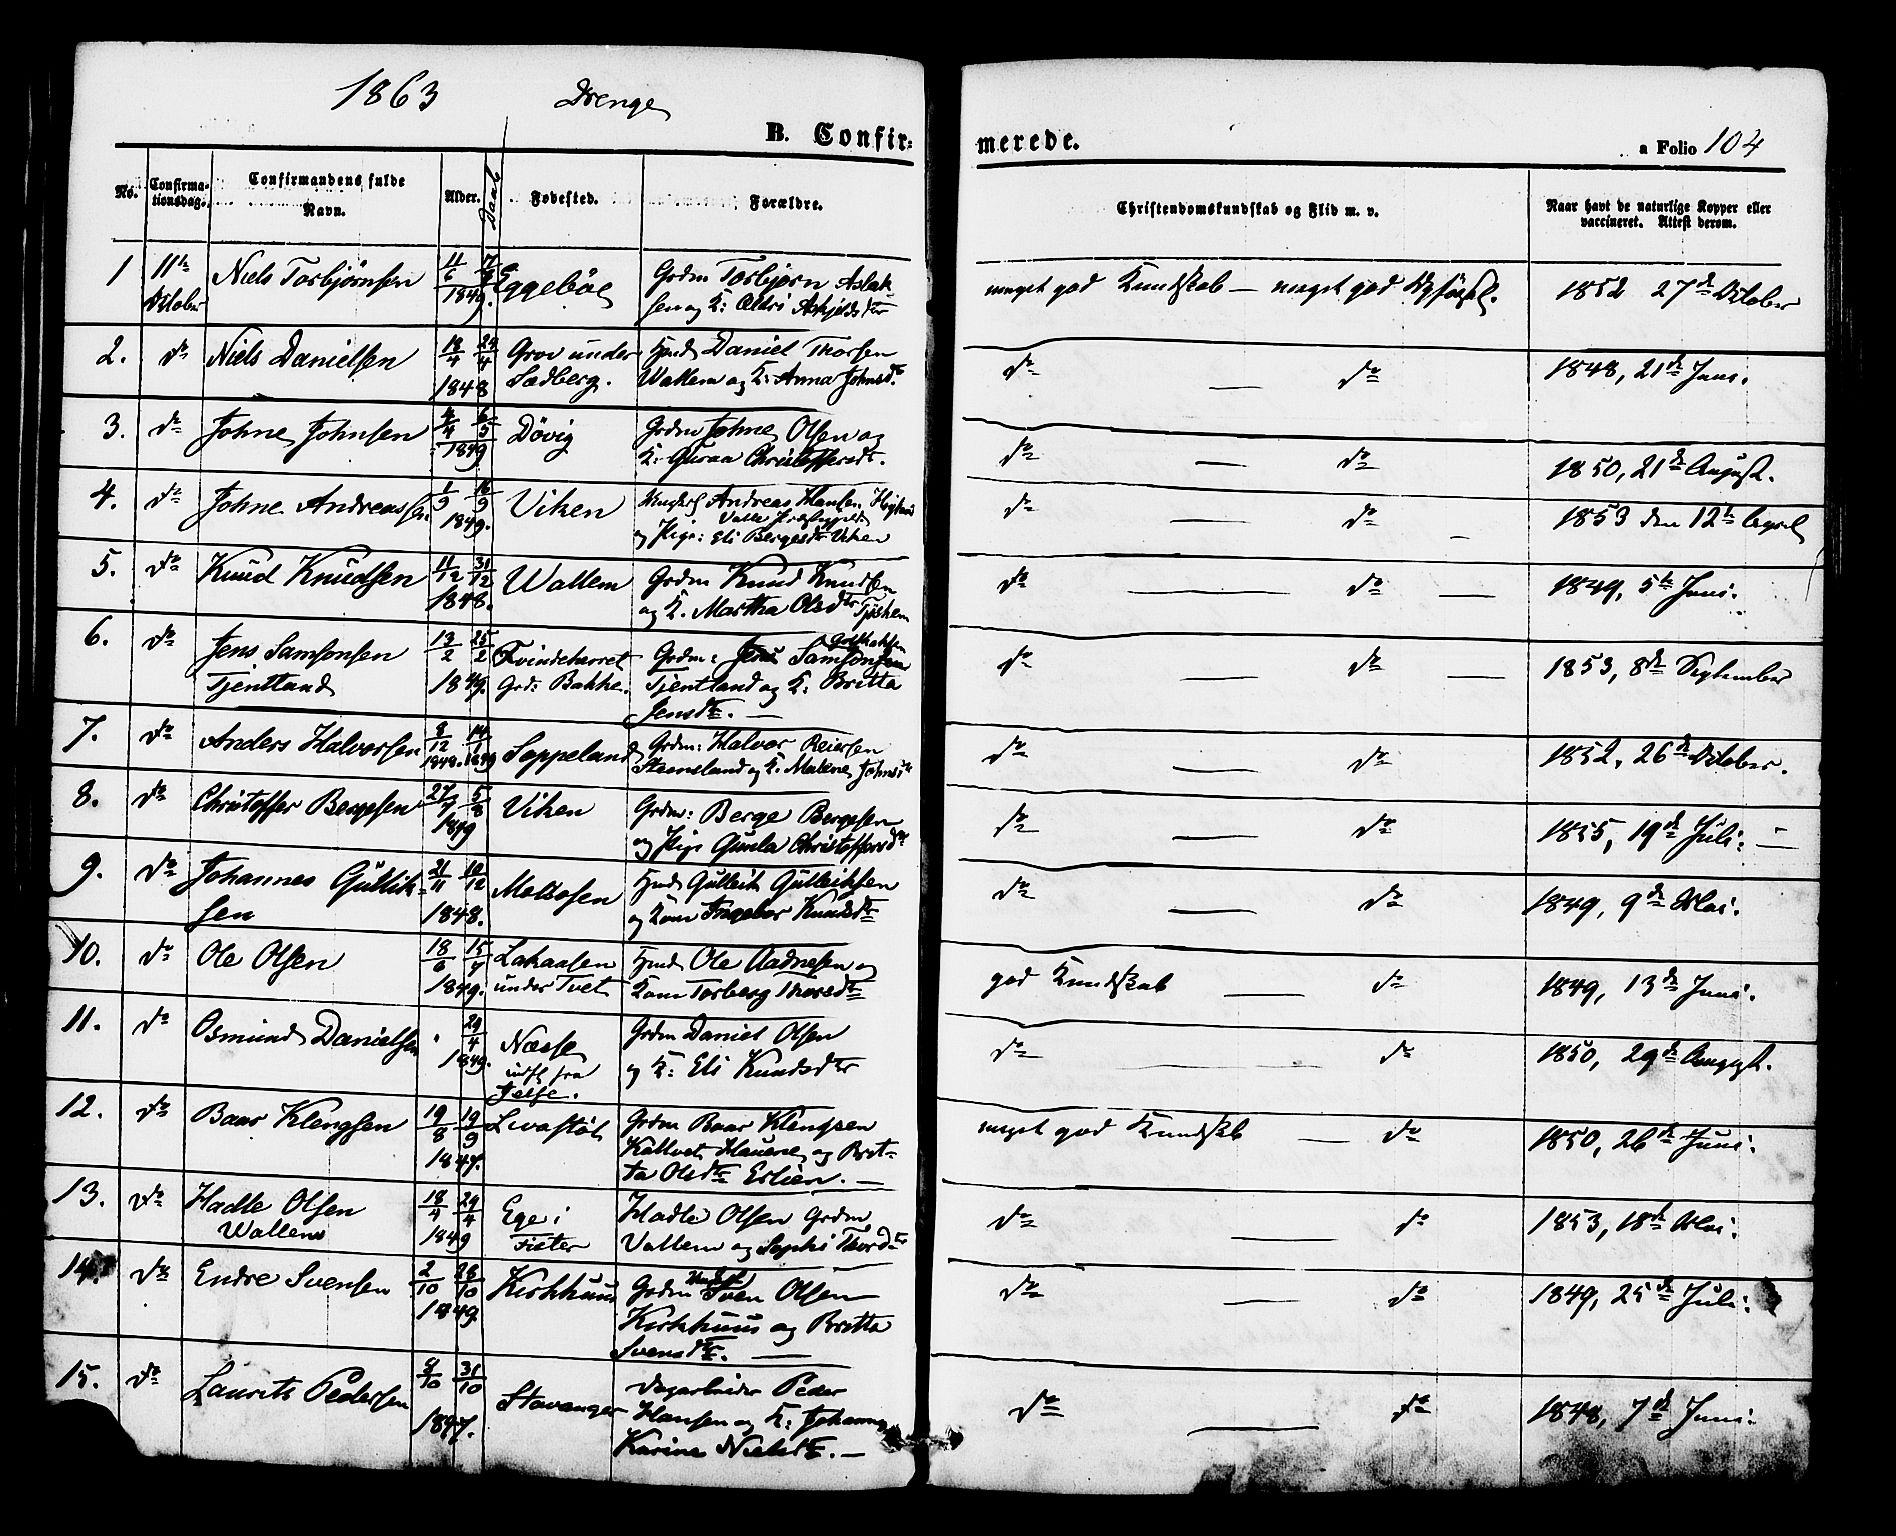 1863 Drenge
B. Confir-
merede.
a Folio 104
No. Confirmationsdag. Confirmandens fulde Navn. Alder. Daab Fødested. Forældre. Christendomskundskab og Flid m. v. Naar havt de naturlige Kopper eller vaccineret. Attest derom.
1 11te Niels Torbjørnsen 11/6 Eggebøe Grdm Torbjørn Aslak meget god Kundskab — meget god 1852 27de October
October 1849. sen og K:
2. do Niels Danielsen 4 24/4 Grov under Hmd Daniel Thorsen do — do 1848, 21de Juni.
1848 Sædberg. Wallem og K: Anna Johnsdtr
3. do Johne Johnsen 4/4 6/5 Døvig Grdm Johne Olsen og do — do 1850, 21de August.
1849 K: Guroa Christoffersdtr.
4. do Johne Andreassen 1/9 16/9 Viken Andreas Hansen do — do 1853 den 12te April
1849.
og Pige: Eli Bergesdtr Viken
5. do Knud Knudsen 11/12 31/12 Wallem Grdm Knud Knudsen do — do — 1849, 5te Juni.
1848. og K. Martha Olsdtr
6. do Jens Samsonsen 13/2 25/2 Grdm: Samsonsen do — do — 1853, 8de September
Tjentland 1849. Grd: Bakke. Tjentland og K: Britta
Jensdtr. —
7. do Anders Halvorsen 8/12 14/1 Søppeland Grdm: Halvor Reiersen do — do 1852, 26de October.
1848. 1849 og K. Malene Johnsdtr
8. do Christoffer Bergesen 27/7 5/8 Viken Grdm: Berge Bergesen do — do 1855, 19de Juli. —
1849 og Pige Gunla Christoffersdtr
9. do Johannes Gullik- 21/11 10/12 Meltosen Hmd Gulleik Gulleiksen do — do 1849, 9de Mai.
sen 1848. og Kone Ingebor Knudsdtr
10. do Ole Olsen 18/6 15/7 Lahaasen Hmd Ole Aadnesen og god Kundskab — do 1849, 13de Juni.
1849. under Tvet Kone Torberg Thorsdtr
11. do Osmund Danielsen 29/4 Næsse Grdm Daniel Olsen do — do 1850, 29de August.
1849. indfl fra og K: Eli Knudsdtr
Jelse.
12. do Baar Klengsen 19/8 19/9 Levastøl Grdm Baar Klengsen meget god Kundskb — do 1850, 26de Juni.
1847. og Brit-
ta Olsdtr Erlien. —
13. do Hadle Olsen 18/4 29/4 Ege i Hadle Olsen Grdm do — do 1853, 18de Mai.
Wallem 1849 Fister Vallem og Sophi Thordtr
14. do Endre Svensen 2/10 28/10 Kirkhuus Grdm Sven Olsen do — do 1849, 25de Juli.
1849 Kirkhuus og Britta
Svensdtr. —
15. do Laurits Pedersen 8/10 31/10 Stavanger Dagarbeider Peder do — do 1848, 7de Juni.
1847. Hansen og K: Johanna
Karine Nielsdtr. —